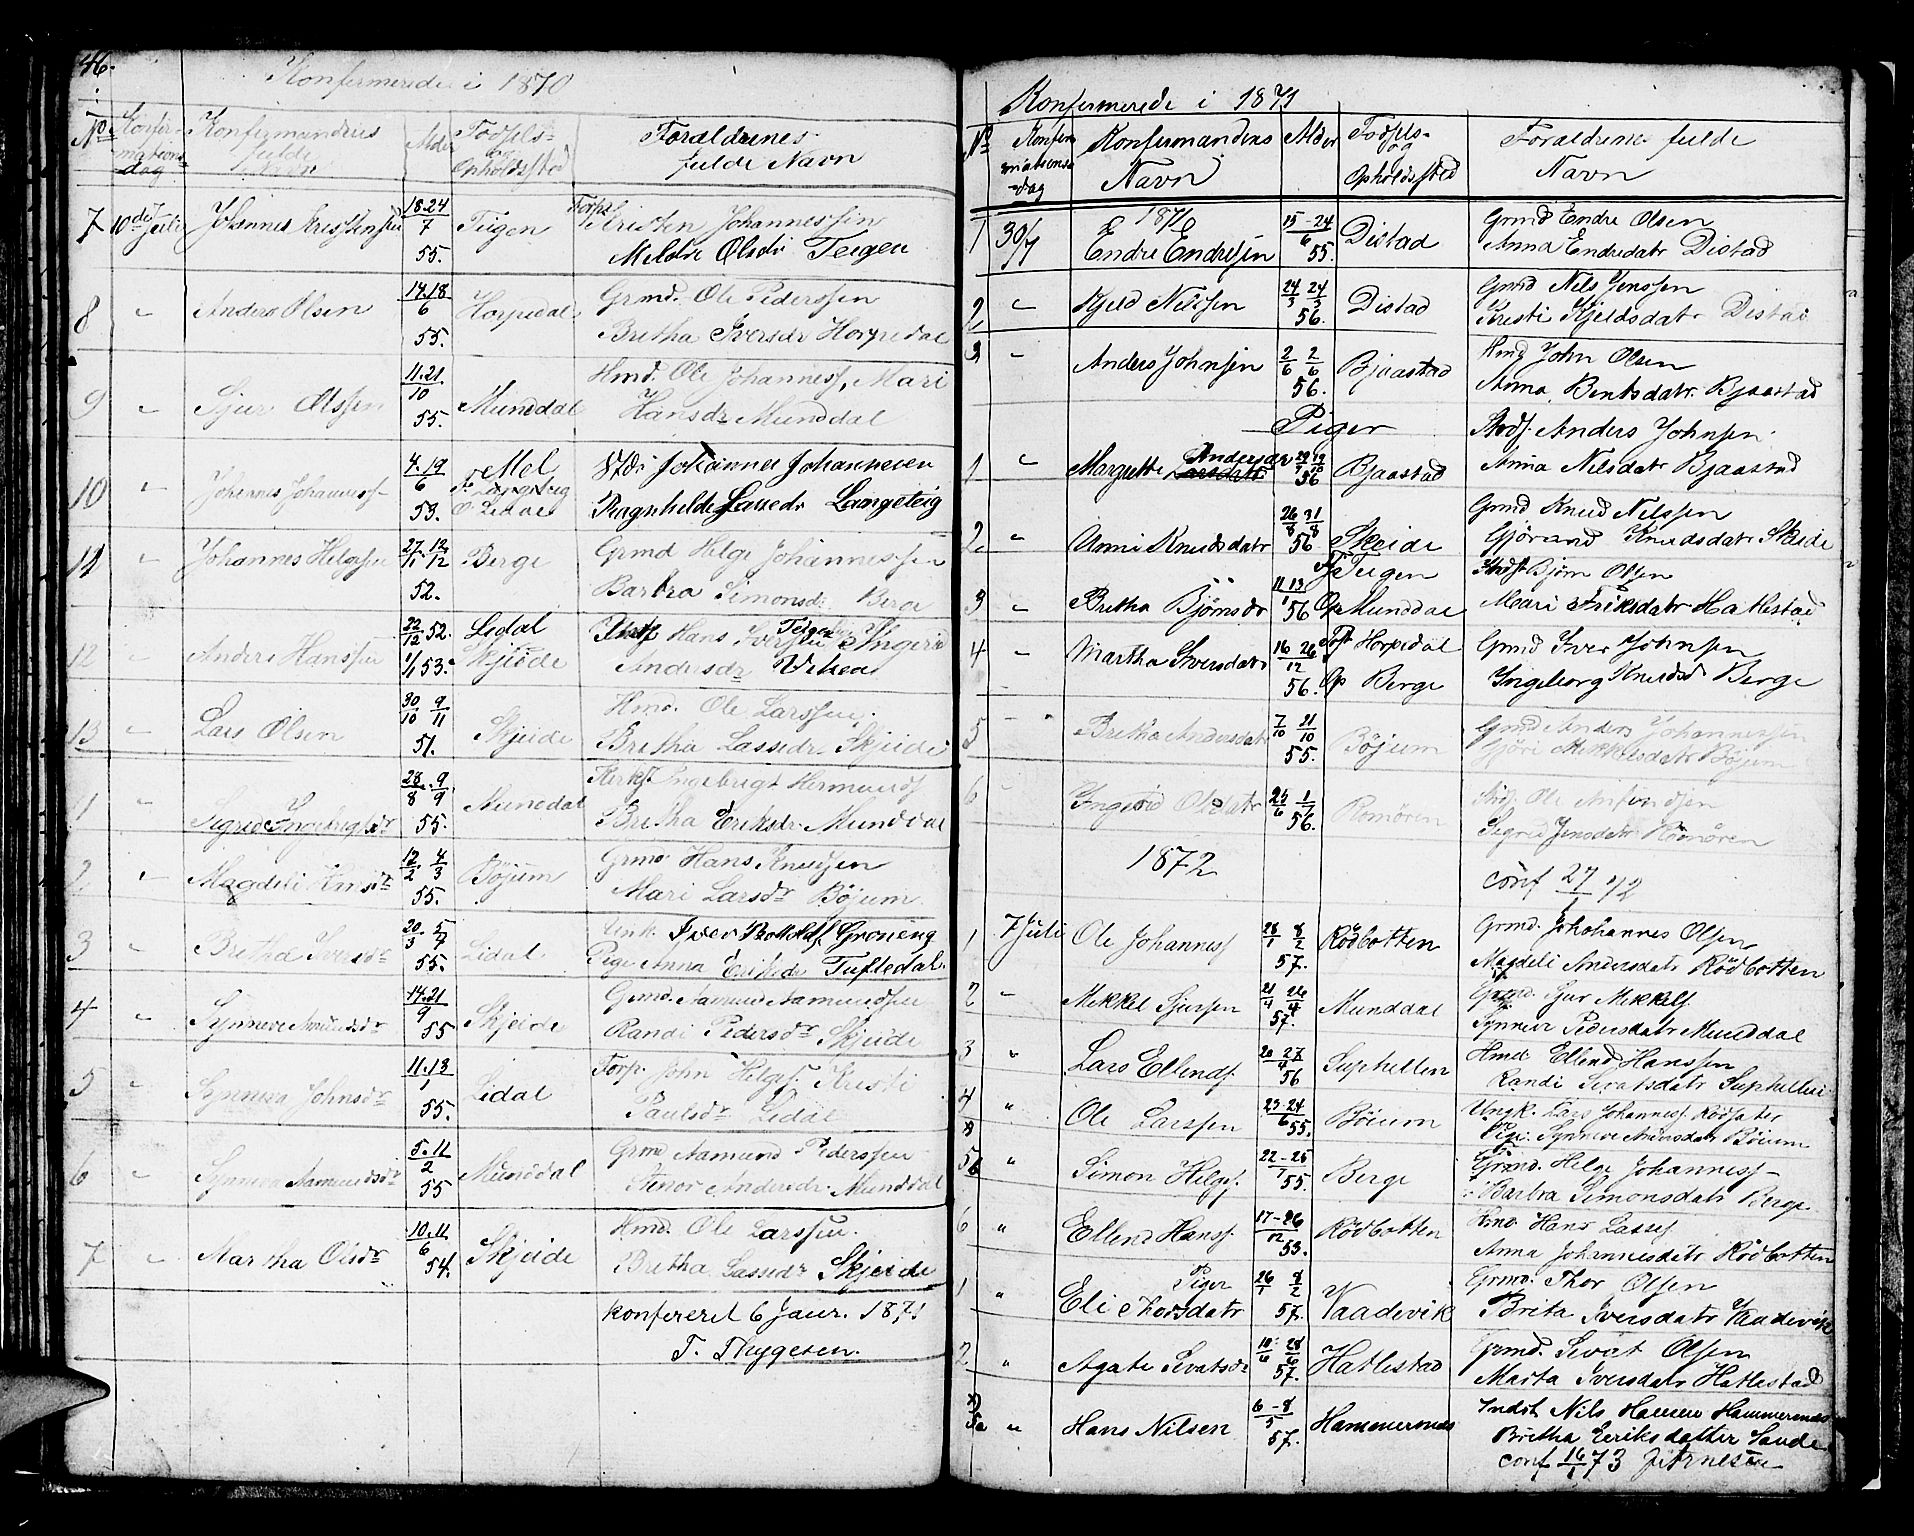 46.
Konfermerede i 1870
No Konfirmationsdag Konfermandens fulde Navn Alder Fødsels- og Opholdssted Foraldrenes fulde Navn
7 10de Juli Johannes Kristensen 18.24/7 55. Teigen Forp. Kristen Johannessen
Meldri Olsdr Teigen
8 " Anders Olsen 17.18/6 55. Horpedal Grmd. Ole Pederssen
Bretha Iversdr Horpedal
9 " Sjur Olssen 11.21/10 55. Munddal Hmd. Ole Johannesf. Mari
Hansdr Munddal
10 " Johannes Johannesf 4.19/6 53. Mel
O Lidal Johannes Johannesen
Ragnhilde Lassedr Langeteig
11 " Johannes Helgesen 27/11 12/12 52. Berge Grmd Helge Johannessen
Barbra Simonsdr Berge
12 " Anders Hanssen 22/12 52. 1/1 53. Lidal
Skjeide Hans Iversen Teigen Ingeri
Andersdr
13 " Lars Olsen 30/10 9/11 51. Skjeide Hmd. Ole Larssen
Bretha Lassedr Skjeide
1 " Sigrid Ingebrigtsdr 28/8 9/9 55. Munddal Kirks. Ingebrigt Hermundsf
Bretha Eriksdr Munddal
2 " Magdeli Hansdr 12/2 4/3 55. Bøjum Grmd Hans Knudsen
Mari Larsdr Bøjum
3 " Bretha Iversdr 20/3 5/7 55. Lidal Unk. Iver Botolfsf. Grøneng
Pige Anna Eriksdr Tuftedal.
4 " Synneve Amundsdr 14.21/9 55 Skjeide Grmd. Aamund Aamundsen
Randi Pedersdr Skjeide
5 " Synneva Johnsdr 11.13/1 55. Lidal Forp. John Helgesf. Kristi
Paulsdr Lidal
6 " Synneva Aamundsdr 5.11/2 55 Munddal Grmd Aamund Pederssen
Andersdr Munddal
7 " Martha Olsdr 10.11/6 54. Skjeide Hmd. Ole Larssen.
Bretha Lassedr Skjeide
konfereret 6 Jaur. 1871
T. Thygesen.
Konfermerede i 1871
No Konfermationsdag Konfermandens Navn Alder Fødsels- og Opholdssted Foraldrene fulde Navn
1871
1 30/7 Endre Endresen 15-24/6 55. Distad Grmd Endre Olsen
Anna Endredatr Distad
2 " Kjeld Nilssen 24/3 24/3 56. Distad Grmd Nils Jenssen
Kristi Kjeldsdatr Distad
3 " Anders Johnsen 2/6 2/6 56. Bjaastad Hmd John Olsen
Anna Bentsdatr Bjaastad
Piger
1 " Margrette Andersdr Larsdatr 56 Bjaastad Anders Johnsen
Anna Nilsdatr Bjaastad
2 " Anna Knudsdatr 26/8 31/8 56 Skeide Grmd Knud Nilssen
Gjørand Knudsdatr Skeide
3 " Bretha Bjørnsdr 11 13/1 56 F Teigen
Op Munddal Bjørn Olsen
Mari Eriksdatr Hatlestad
4 " Martha Iversdatr 16 26/12 56. Fst Horpedal
Op Berge Grmd Iver Johnsen
Ingeborg Knudsd Berge
5 " Bretha Andersdatr 7/10 21/10 55. Bøjum Grmd Anders Johannessen
Gjøri Mikkelsdatr Bøjum
6 " Ingerid Olsdatr 25/6 1/7 56. Romøren Ole Anfindsen
Sigrid Jensdatr Romøren
1872 conf 27/1 72
1 7 Juli Ole Johannesf 28/1 8/2 57. Rødbotten Grmd. Johohannes Olsen
Magdeli Andersdatr Rødbotten
2 " Mikkel Sjursen 21/4 26/4 57. Munddal Grmd. Sjur Mikkelsf
Synneve Pedersdatr Munddal
3 " Lars Ellendsf. 20 27/4 56 Suphellen Hmd Ellend Hanssen
Randi Sivatsdatr Suphellen
4 " Ole Larssen 23-24/6 55. Bøium Ungk. Lars Johannesf. Rødsæter
Pige Synneve Andersdatr Bøium
5 " Simon Helgesf. 22-25/7 55. Berge Grmd. Helge Johannesf
Barbra Simonsdatr Berge.
6 " Ellend Hansf. 17-26/12 53. Rødbotten Hmd Hans Lassesf
Anna Johannesdatr Rødbotten
Piger
1 " Eli Thorsdatr 26/1 8/2 57. Vaadevik Grmd. Thor Olsen
Brita Iversdatr Vaadevik
2 " Agate Sivatsdr 10/6 28/6 57. Hatlestad Grmd. Sivat Olsen
Marta Iversdatr Hatlestad
" Hans Nilsen 6-8/5 57. Hammersnes Indst Nils Hansen Hammersnes
Bretha Eeriksdatter Sande
conf 16/1 73